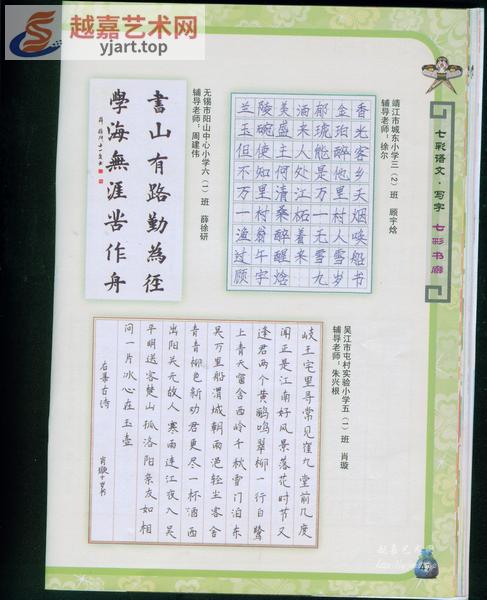 越嘉艺术网
yjart.top
七彩语文·写字 七彩书廊
靖江市城东小学三(2)班 顾宇焓
辅导老师：徐尔
兰陵美酒郁金香
玉碗盛来琥珀光
但使主人能醉客
不知何处是他乡
万里清江万里天
一村桑柘一村烟
渔翁醉着无人唤
过午醒来雪满船
顾宇焓 九岁书
无锡市阳山中心小学六(一)班 薛徐研
辅导老师：周建伟
書山有路勤為徑
學海無涯苦作舟
吴江市屯村实验小学五(一)班 肖璇
辅导老师：朱兴根
岐王宅里寻常见崔九堂前几度
闻正是江南好风景落花时节又
逢君两个黄鹂鸣翠柳一行白鹭
上青天窗含西岭千秋雪门泊东
吴万里船渭城朝雨浥轻尘客舍
青青柳色新劝君更尽一杯酒西
出阳关无故人寒雨连江夜入吴
平明送客楚山孤洛阳亲友如相
问一片冰心在玉壶
古诗
肖璇十岁书
越嘉艺术网
47